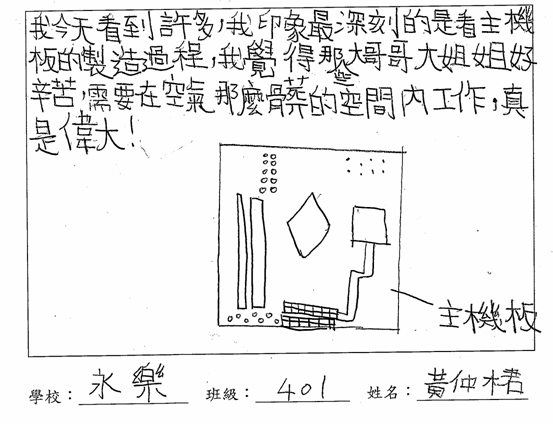 我今天看到許多,我印象最深刻的是看主機
板的製造過程,我覺得那些大哥哥大姐姐好
辛苦,需要在空氣那麼髒的空間內工作,真
是偉大!
主機板
學校:永樂 班級:401 姓名:黃仲桾